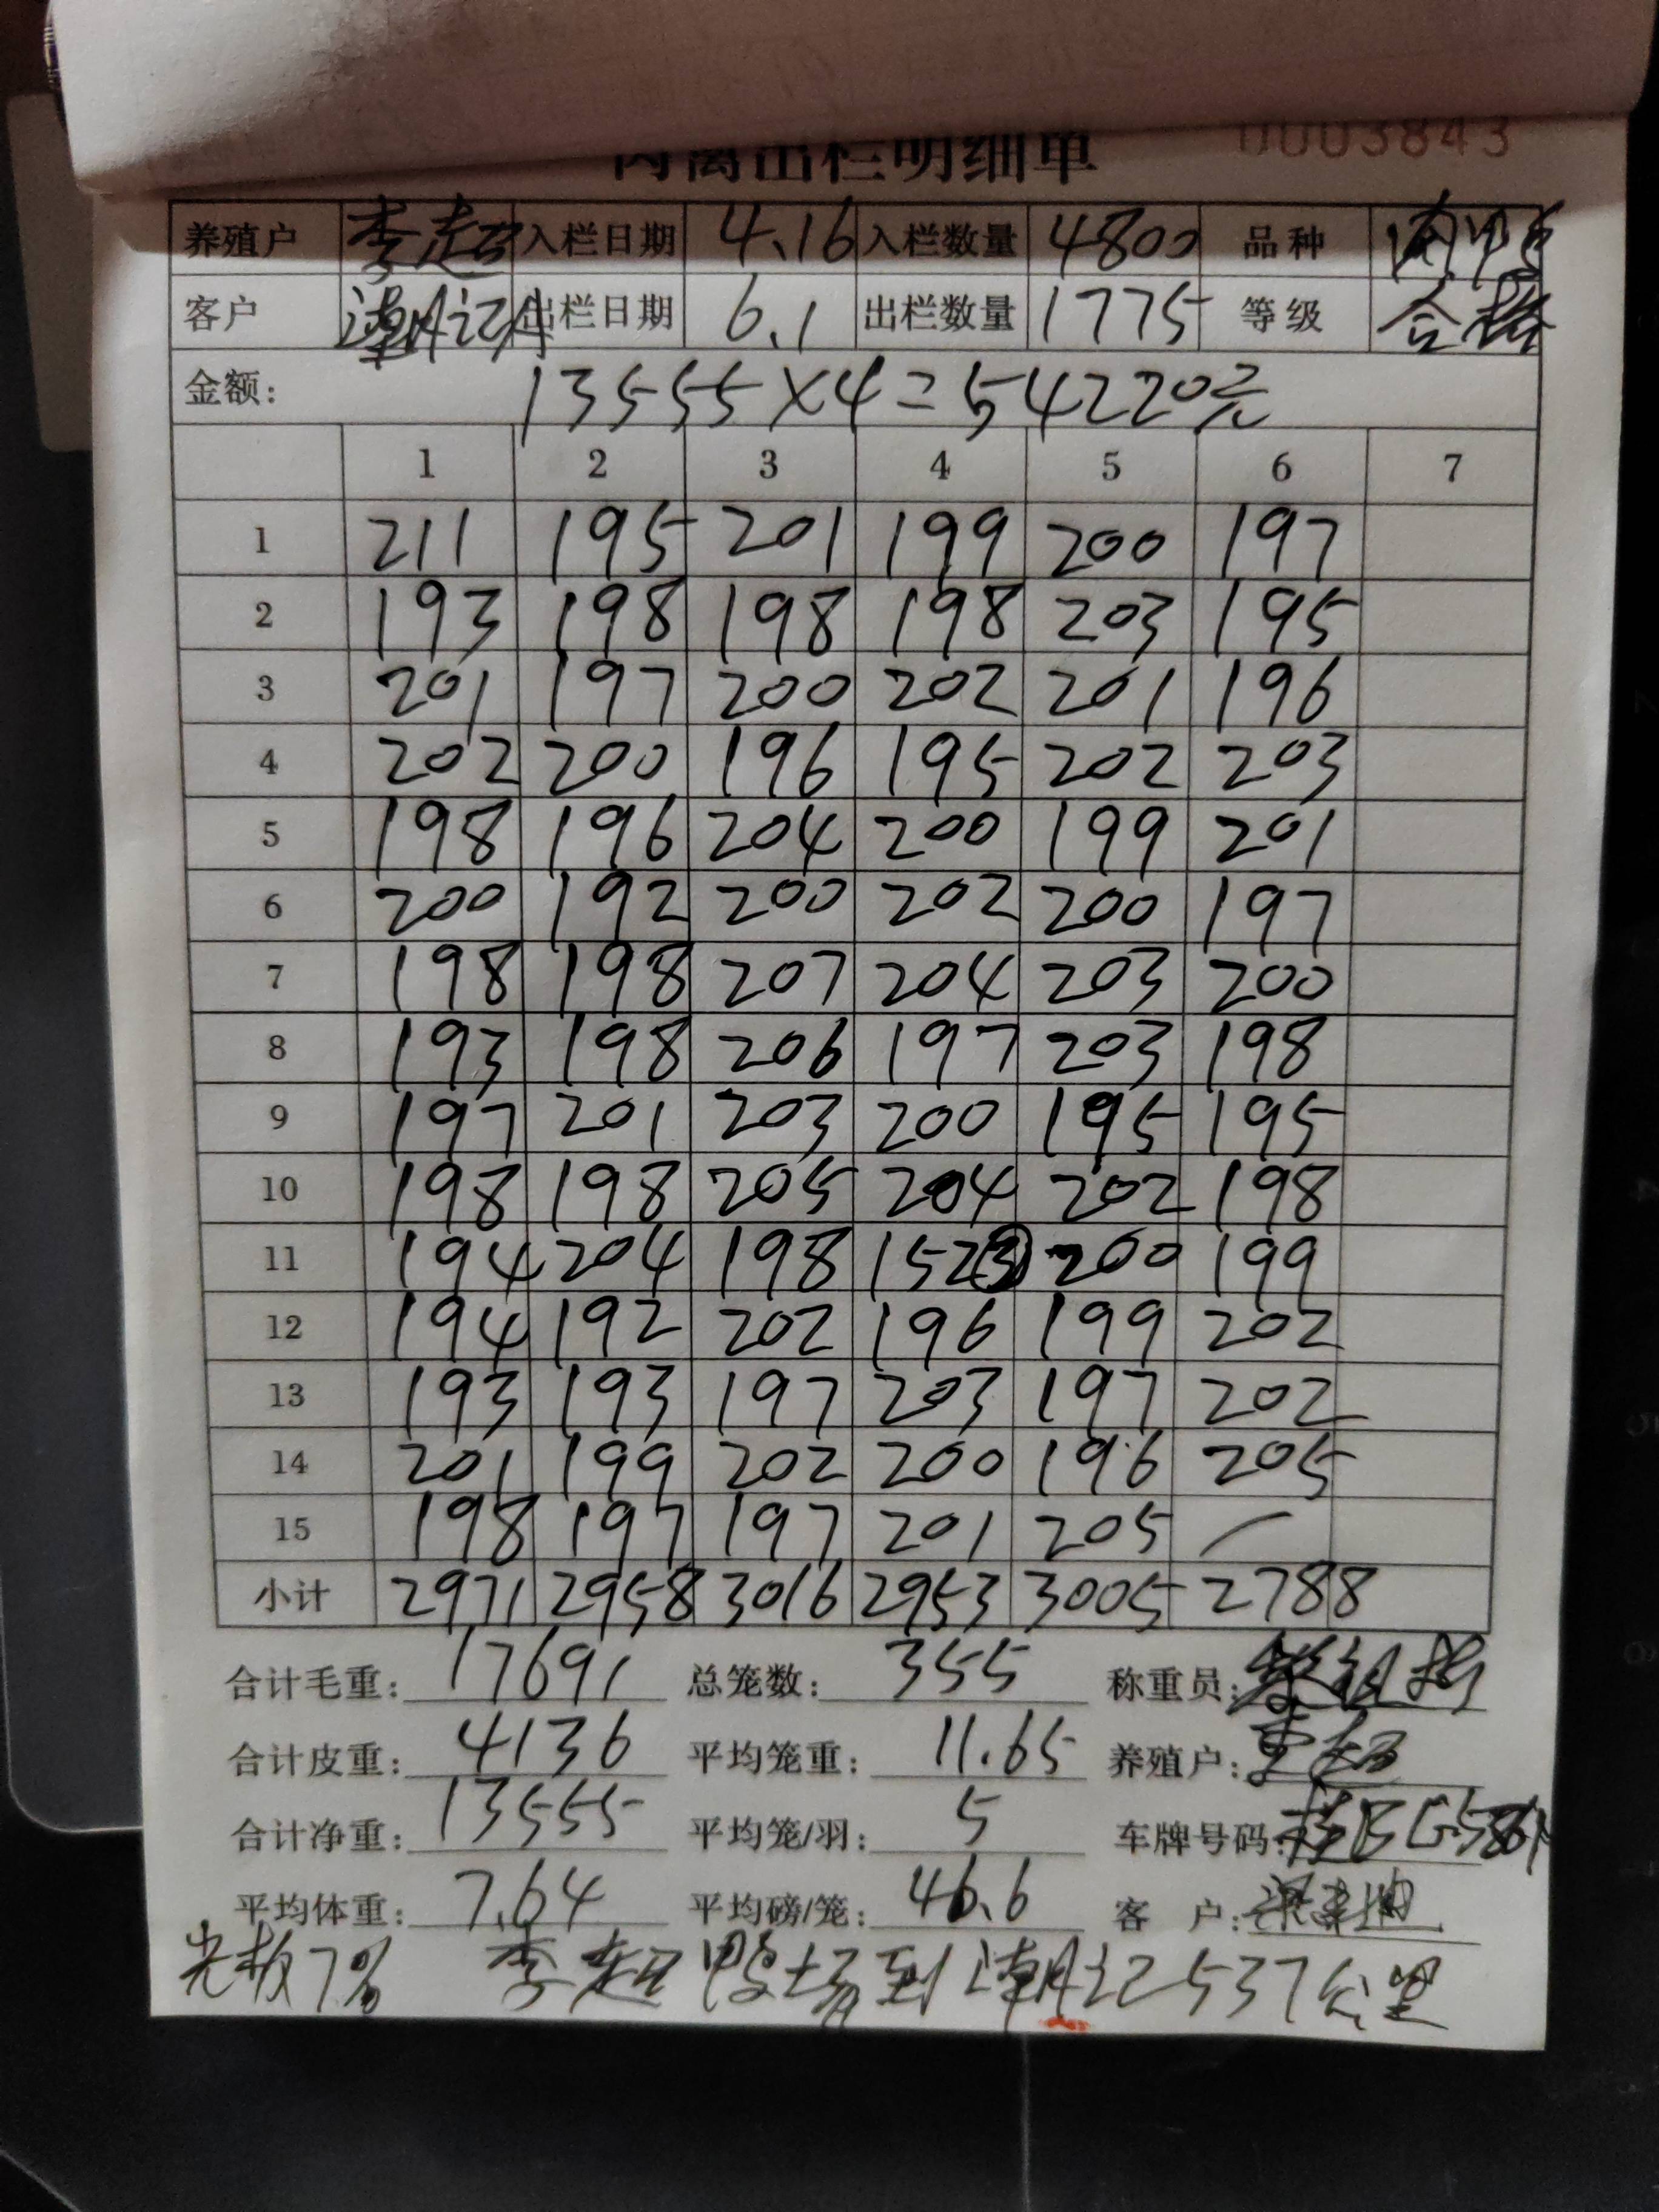 肉禽出栏明细单 0003843
养殖户 李超 入栏日期 4.16 入栏数量 4800 品种 肉鸭
客户 潮记 出栏日期 6.1 出栏数量 1775 等级 合格
金额: 13555×4=54220元
1 2 3 4 5 6 7
1 211 195 201 199 200 197
2 193 198 198 198 203 195
3 201 197 200 202 201 196
4 202 200 196 195 202 203
5 198 196 204 200 199 201
6 200 192 200 202 200 197
7 198 198 207 204 203 200
8 193 198 206 197 203 198
9 197 201 203 200 195 195
10 198 198 205 204 202 198
11 194 204 198 152③ 200 199
12 194 192 202 196 199 202
13 193 193 197 203 197 202
14 201 199 202 200 196 205
15 198 197 197 201 205 —
小计 2971 2958 3016 2953 3005 2788
合计毛重: 17691 总笼数: 355 称重员:
合计皮重: 4136 平均笼重: 11.65 养殖户: 李超
合计净重: 13555 平均笼/羽: 5 车牌号码:
平均体重: 7.64 平均磅/笼: 46.6 客 户:
光板7% 李超鸭场到潮记537公里